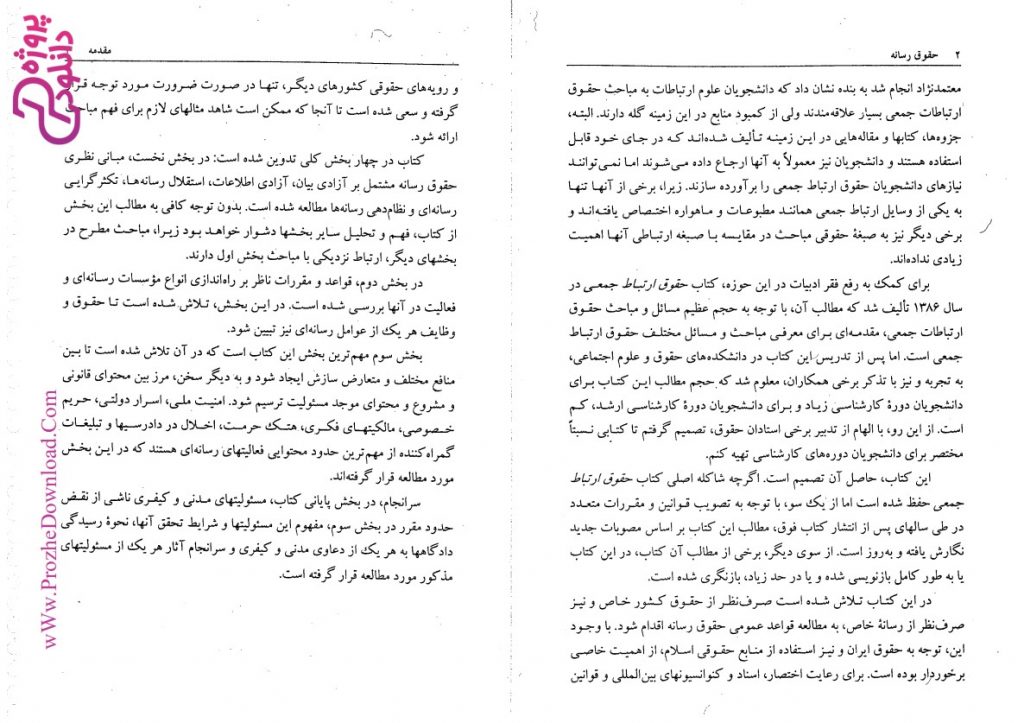 ۲ حقوق رسانه
معتمدنژاد انجام شد به بنده نشان داد که دانشجویان علوم ارتباطات به مباحث حقوق
ارتباطات جمعی بسیار علاقه‌مندند ولی از کمبود منابع در این زمینه گله دارند. البته،
جزوه‌ها، کتابها و مقاله‌هایی در این زمینه تألیف شده‌اند کـه در جـای خـود قابل
استفاده هستند و دانشجویان نیز معمولاً به آنها ارجـاع داده مـی‌شوند امـا نمـی‌تواننـد
نیازهای دانشجویان حقوق ارتباط جمعی را برآورده سازند. زیرا، برخی از آنهـا تنهـا
به یکی از وسایل ارتباط جمعی همانند مطبوعـات و ماهواره اختـصاص یافتـه‌انـد و
برخی دیگر نیز به صبغهٔ حقوقی مباحث در مقایسه بـا صـبغه ارتبـاطی آنهـا اهمیـت
زیادی نداده‌اند.
برای کمک به رفع فقر ادبیات در این حوزه، کتاب حقوق ارتباط جمعـی در
سال ۱۳۸۶ تألیف شد که مطالب آن، با توجه به حجم عظیم مسائل و مباحث حقوق
ارتباطات جمعی، مقدمه‌ای بـرای معرفـی مباحـث و مسـائل مختلـف حقـوق ارتبـاط
جمعی است. اما پس از تدریس این کتاب در دانشکده‌های حقوق و علوم اجتماعی،
به تجربه و نیز با تذکر برخی همکاران، معلوم شد کـه حجم مطالب ایـن کتـاب بـرای
دانشجویان دورۀ کارشناسی زیـاد و بـرای دانـشجویان دورۀ کارشناسـی ارشـد، کـم
است. از این رو، با الهام از تدبیر برخی استادان حقوق، تصمیم گرفتم تا کتـابی نسبتاً
مختصر برای دانشجویان دوره‌های کارشناسی تهیه کنم.
این کتاب، حاصل آن تصمیم است. اگرچه شاکله اصلی کتاب حقوق ارتباط
جمعی حفظ شده است اما از یک سو، با توجه به تصویب قوانین و مقـررات متعـدد
در طی سالهای پس از انتشار کتاب فوق، مطالب این کتاب بر اساس مصوبات جدید
نگارش یافته و به‌روز است. از سوی دیگر، برخی از مطالب آن کتاب، در این کتاب
یا به طور کامل بازنویسی شده و یا در حد زیاد، بازنگری شده است.
در این کتـاب تـلاش شـده اسـت صـرف‌نظر از حقـوق کشـور خاص و نیـز
صرف‌نظر از رسانهٔ خاص، به مطالعه قواعد عمومی حقوق رسانه اقدام شود. با وجود
این، توجه به حقوق ایران و نیـز اسـتفاده از منـابع حقـوقی اسـلام، از اهمیـت خاصـی
برخوردار بوده است. برای رعایت اختصار، اسناد و کنوانسیونهای بین‌المللی و قوانین
مقدمه
و رویه‌های حقوقی کشورهای دیگـر، تنهـا در صـورت ضـرورت مـورد توجـه قـرار
گرفته و سعی شده است تا آنجا که ممکن است شاهد مثالهای لازم برای فهم مباحث
ارائه شود.
کتاب در چهار بخش کلی تدوین شده است: در بخش نخست، مبـانی نظـری
حقوق رسانه مشتمل بر آزادی بیان، آزادی اطلاعات، استقلال رسانه‌هـا، تکثرگرایـی
رسانه‌ای و نظام‌دهی رسانه‌ها مطالعه شده است. بدون توجه کافی به مطالب این بخش
از کتاب، فهـم و تحلیـل سـایر بخشها دشـوار خواهـد بـود زیـرا، مباحث مطـرح در
بخشهای دیگر، ارتباط نزدیکی با مباحث بخش اول دارند.
در بخش دوم، قواعد و مقررات ناظر بر راه‌اندازی انواع مؤسسات رسانه‌ای و
فعالیت در آنها بررسی شده است. در ایـن بخـش، تـلاش شـده اسـت تـا حقـوق و
وظایف هر یک از عوامل رسانه‌ای نیز تبیین شود.
بخش سوم مهم‌ترین بخش این کتاب است که در آن تلاش شده است تا بـین
منافع مختلف و متعارض سازش ایجاد شود و به دیگر سخن، مرز بین محتوای قانونی
و مشروع و محتوای موجد مسئولیت ترسیم شود. امنیت ملـی، اسـرار دولتـی، حـریم
خـصوصی، مالکیتهـای فکـری، هتـک حرمـت، اخـلال در دادرسـیها و تبلیغـات
گمراه‌کننده از مهم‌ترین حدود محتوایی فعالیتهای رسانه‌ای هستند که در ایـن بخـش
مورد مطالعه قرار گرفته‌اند.
سرانجام، در بخش پایانی کتاب، مسئولیتهای مـدنی و کیفـری ناشـی از نقـض
حدود مقرر در بخش سوم، مفهوم این مسئولیتها و شرایط تحقق آنها، نحوۀ رسیدگی
دادگاهها به هر یک از دعاوی مدنی و کیفری و سرانجام آثار هر یک از مسئولیتهای
مذکور مورد مطالعه قرار گرفته است.
پروژه
دانلود
wWw.ProzheDownload.Com